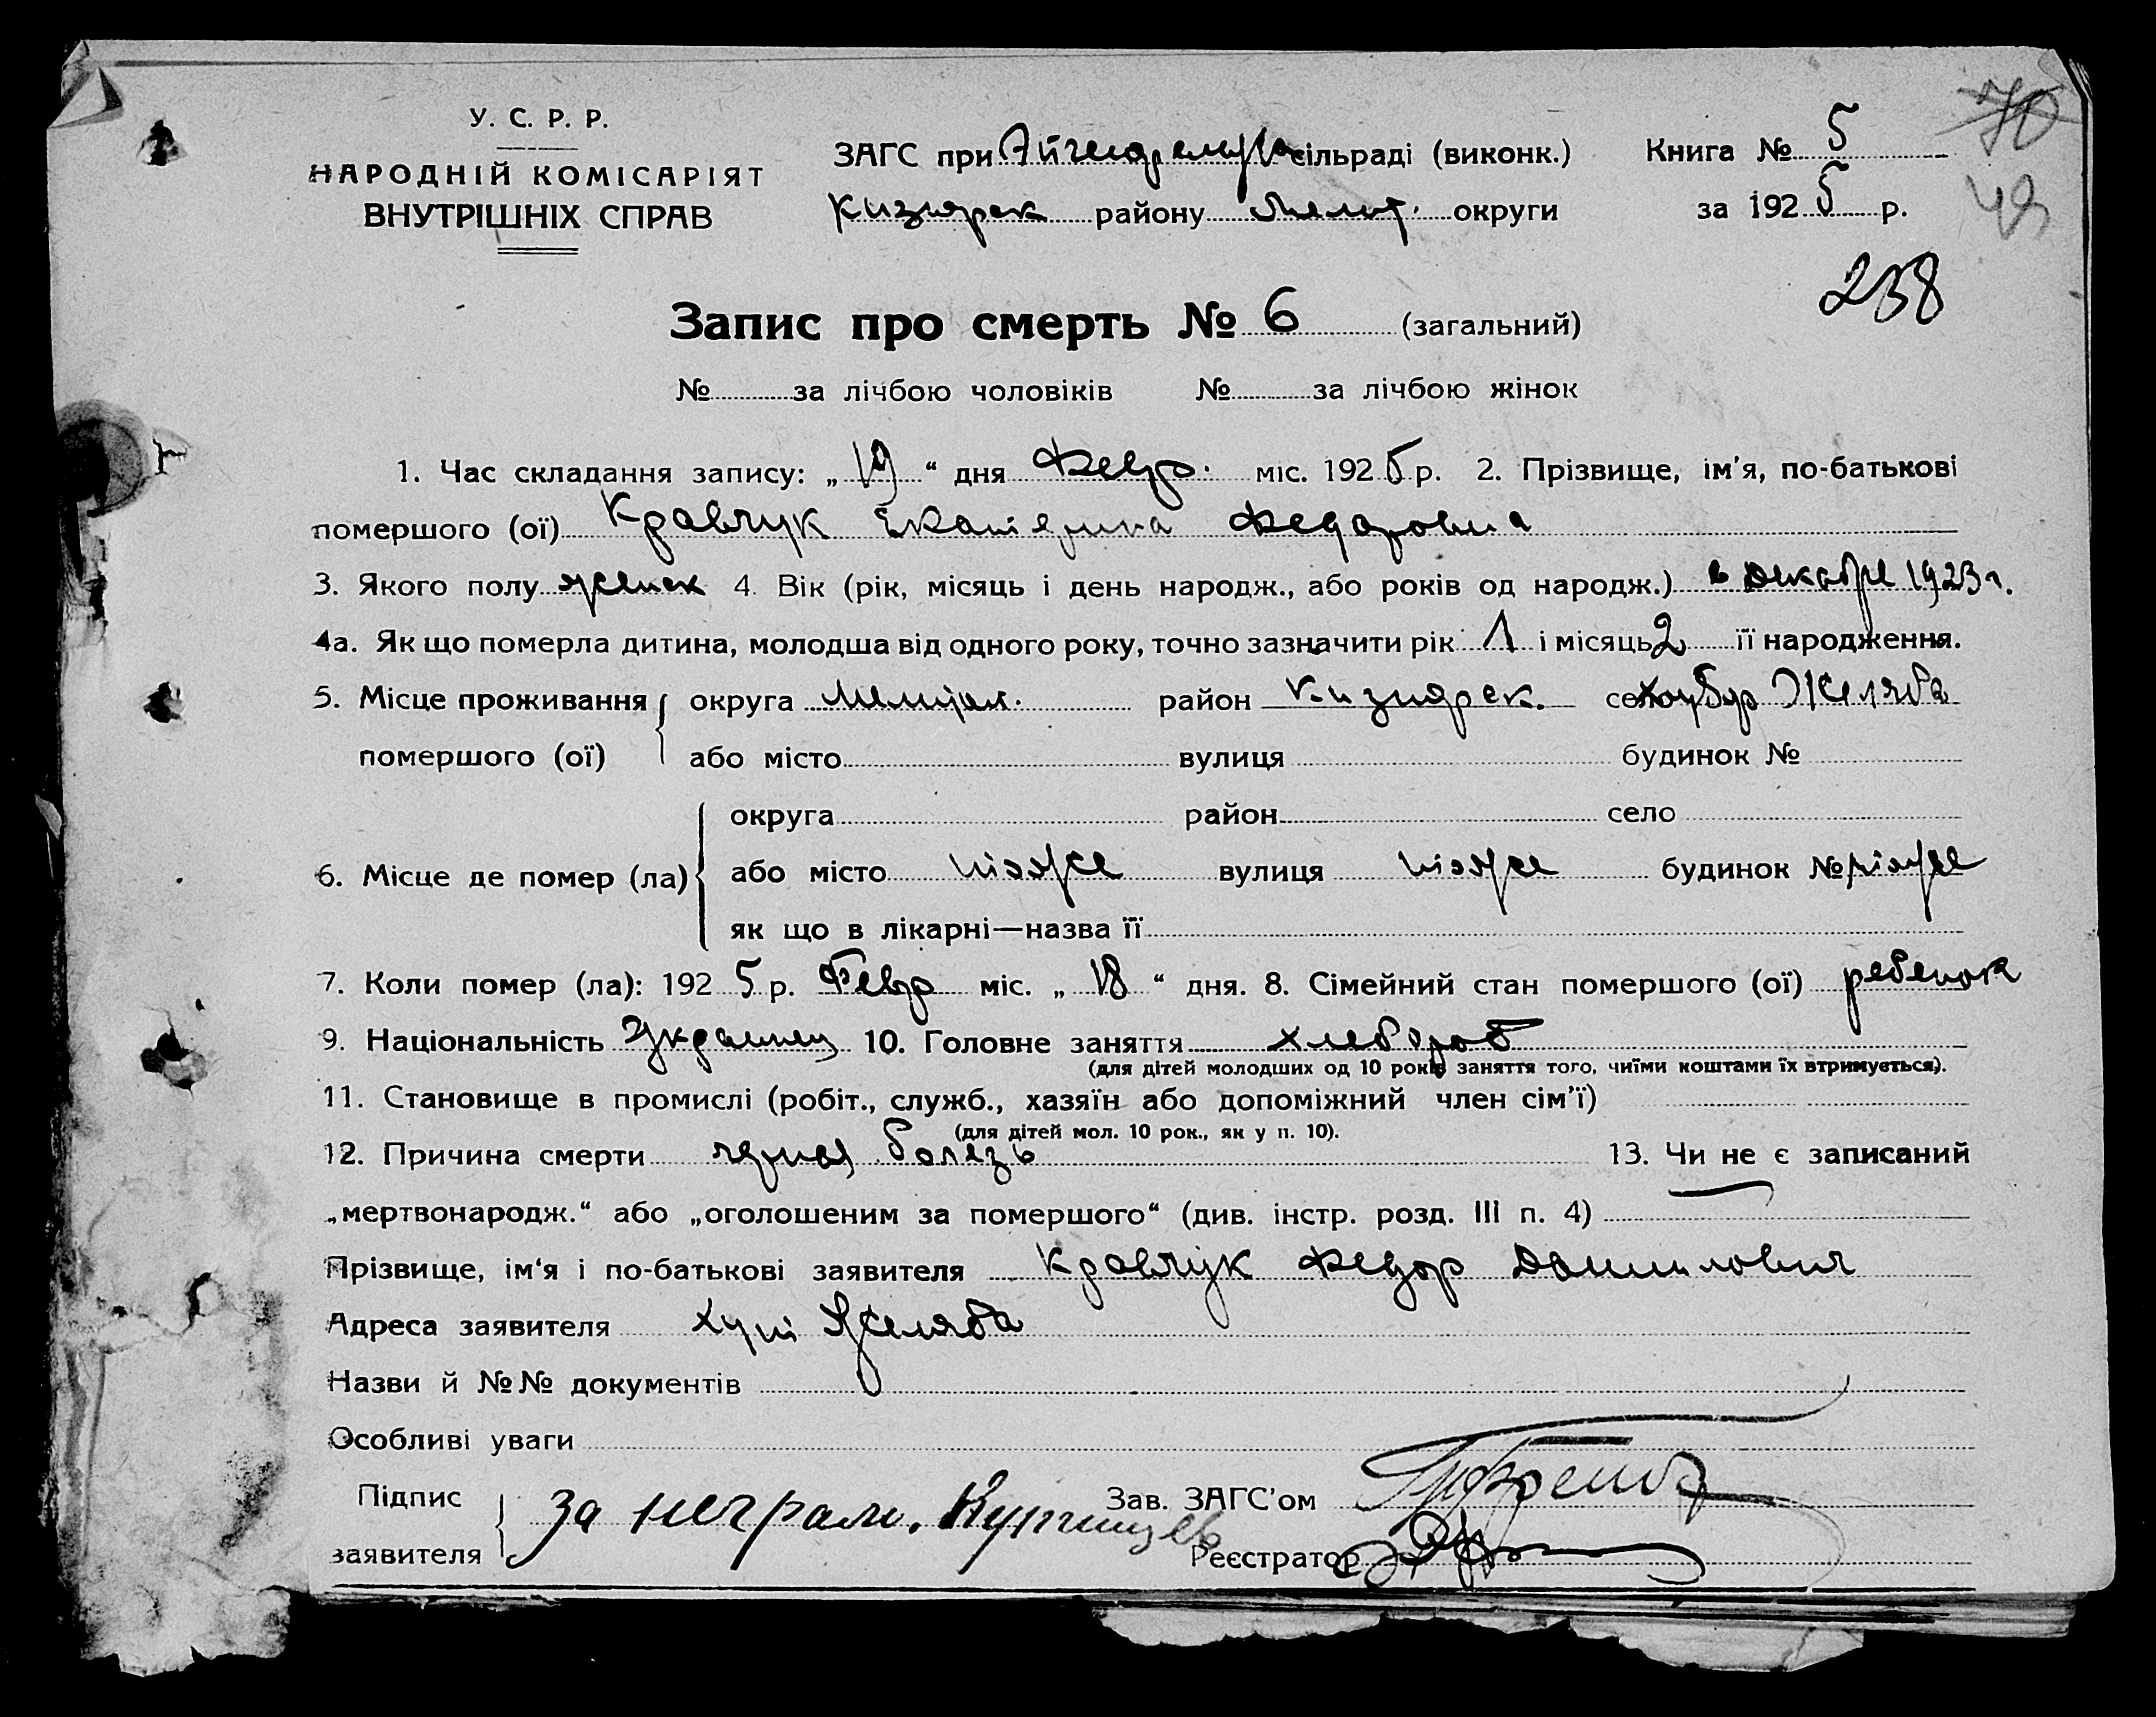 У. С. Р. Р.
НАРОДНІЙ КОМІСАРІЯТ
ВНУТРІШНІХ СПРАВ
ЗАГС при сільраді (виконк.)
Кизиярск району Мелит. округи
Книга № 5
за 1925 р.
70
49
238
Запис про смерть № 6 (загальний)
№ за лічбою чоловіків № за лічбою жінок
1. Час складання запису: „19“ дня Февр. міс. 1925 р. 2. Прізвище, ім'я, по-батькові
помершого (ої) Кравчук Екатерина Федоровна
3. Якого полу женск 4. Вік (рік, місяць і день народж., або років од народж.) в декабре 1923 г.
4а. Як що померла дитина, молодша від одного року, точно зазначити рік 1 і місяць 2 її народження.
5. Місце проживання округа район Кизиярск. село Желяба
помершого (ої) або місто вулиця будинок №
округа район село
6. Місце де помер (ла) або місто тоже вулиця тоже будинок № тоже
як що в лікарні—назва її
7. Коли помер (ла): 1925 р. Февр міс. „18“ дня. 8. Сімейний стан помершого (ої) ребенок
9. Національність Украинец 10. Головне заняття хлебороб
(для дітей молодших од 10 років заняття того, чиїми коштами їх втримується).
11. Становище в промислі (робіт., служб., хазяїн або допоміжний член сім'ї)
(для дітей мол. 10 рок., як у п. 10).
12. Причина смерти 13. Чи не є записаний
„мертвонародж.“ або „оголошеним за помершого“ (див. інстр. розд. III п. 4)
Прізвище, ім'я і по-батькові заявителя Кравчук Федор Данилович
Адреса заявителя Хут Желяба
Назви й №№ документів
Особливі уваги
Підпис
заявителя
за неграм.
Зав. ЗАГС'ом
Реєстратор